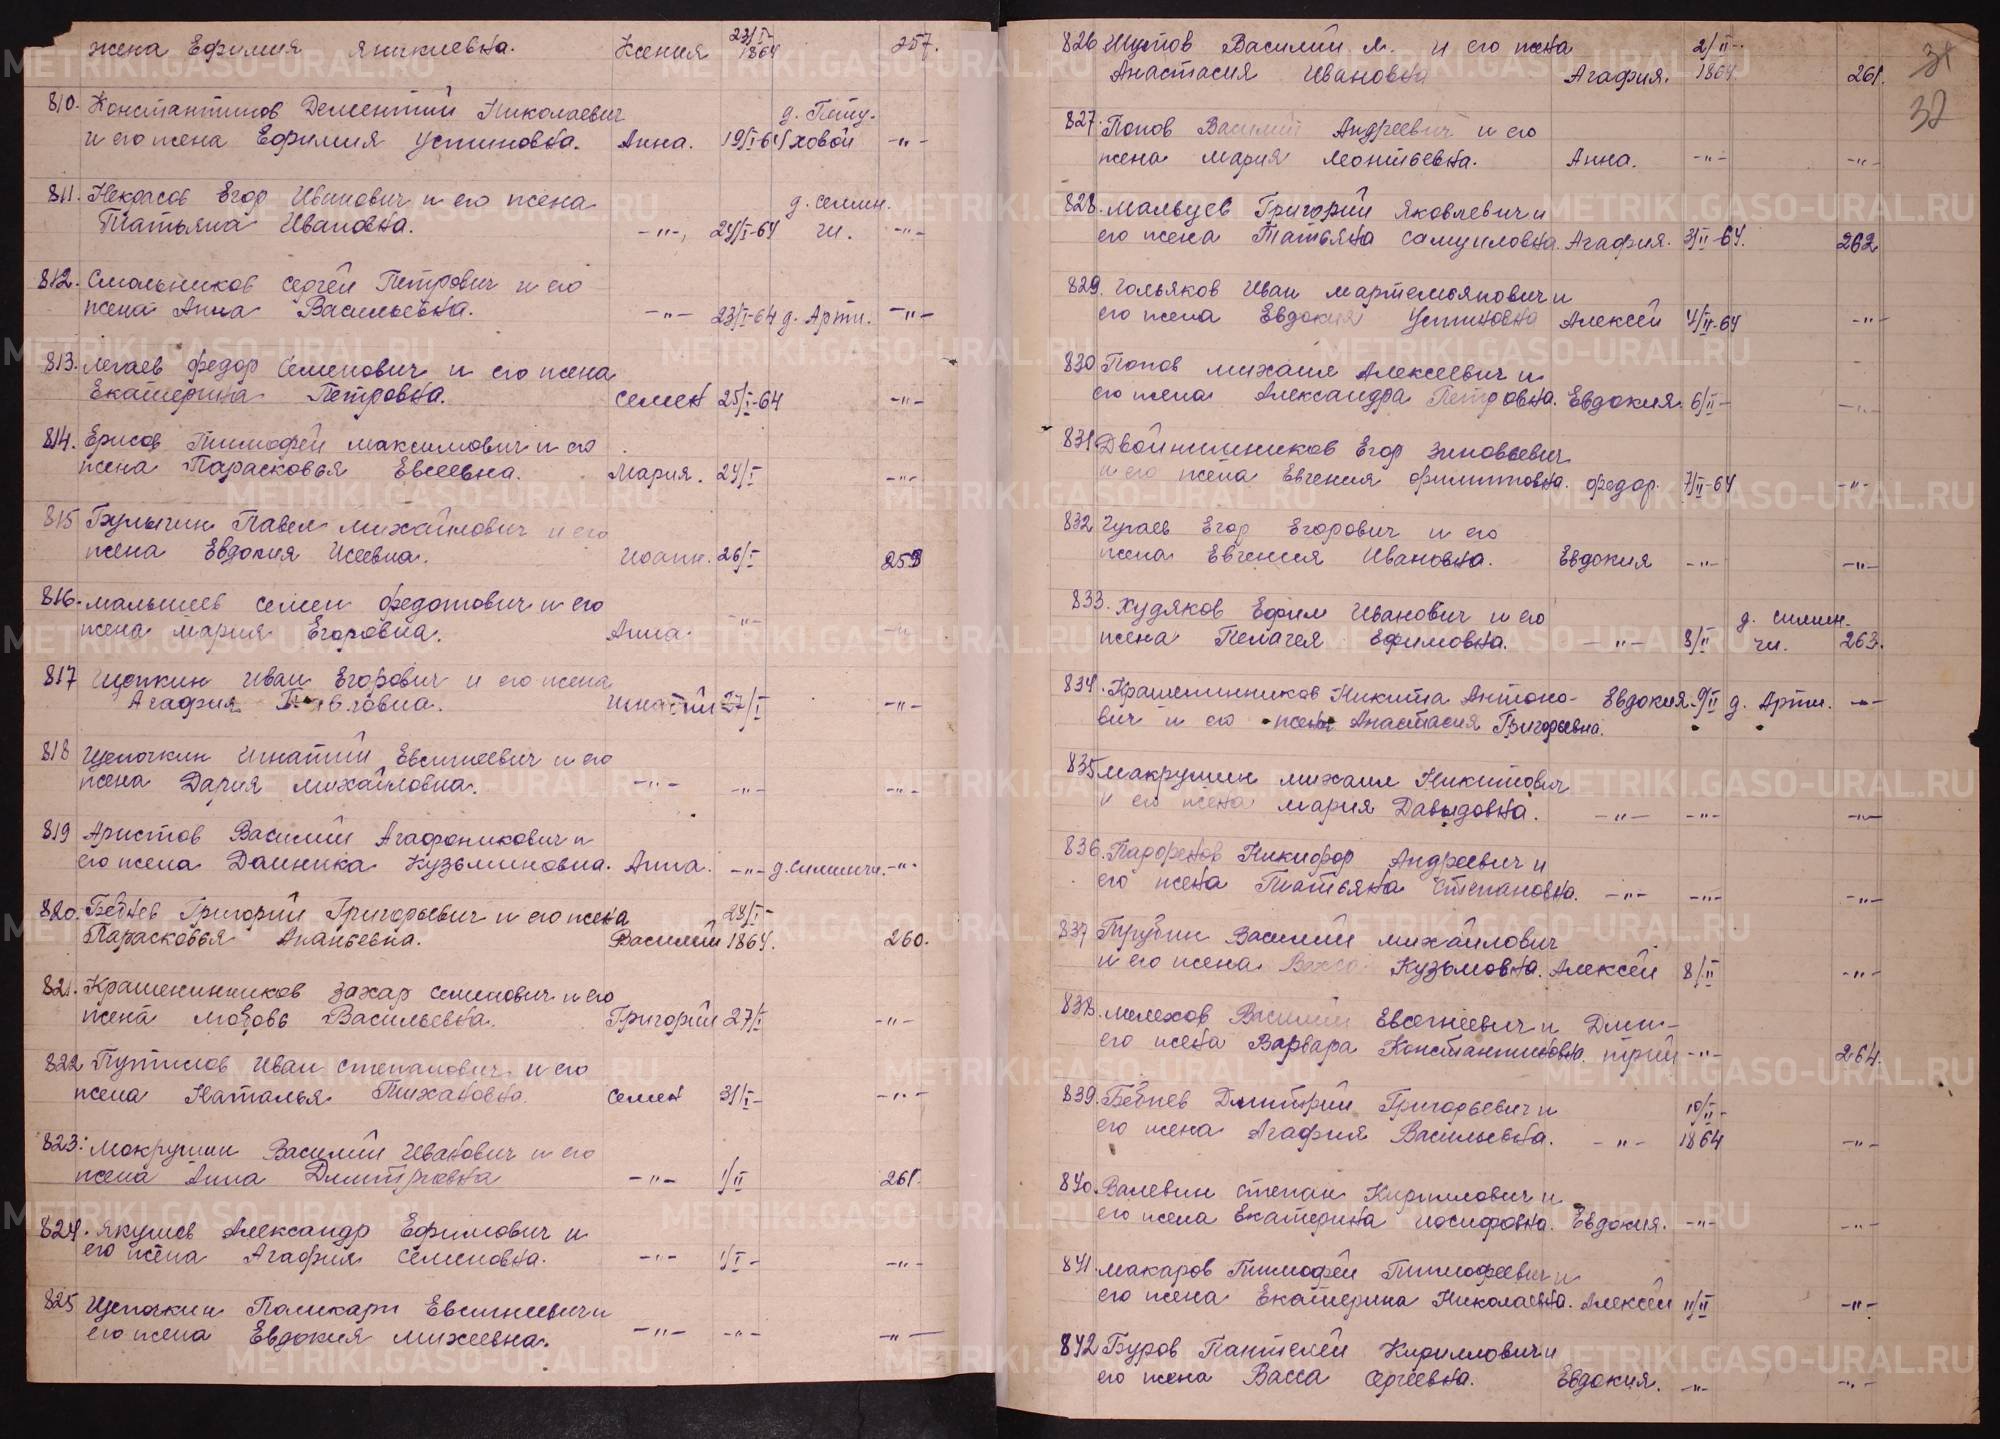 жена Ефимия Яникиевна. Ксения 23/I- 1864 257.
810. Константинов Дементий Николаевич д. Пету-
и его жена Ефимия Устиновна. Анна. 19/I-64 ховой -"-
811. Некрасов Егор Иванович и его жена д. Симин.
Татьяна Ивановна. -"-, 24/I-64 чи. -"-
812. Смольников Сергей Петрович и его
жена Анна Васильевна. -"- 23/I-64 д. Арти. -"-
813. Федор Семенович и его жена
Екатерина Петровна. Семен 25/I-64 -"-
814. Тимофей Максимович и его
жена Парасковья Евсеевна. Мария. 24/I -"-
815 Булыгин Павел Михайлович и его
жена Евдокия Исеевна. Иоанн. 26/I 259
816. Малышев Семен Федотович и его
жена Мария Егоровна. Анна -"- -"-
817 Иван Егорович и его жена
Агафия Павловна. Игнатий 27/I -"-
818 Щепочкин Игнатий Евсигнеевич и его
жена Дария Михайловна. -"- -"- -"-
819 Аристов Василий Агафоникович и
его жена Домника Кузьминовна. Анна. -"- д. Симинчи. -"-
820. Бебнев Григорий Григорьевич и его жена 28/I-
Парасковья Ананьевна. Василий 1864. 260.
821. Крашенинников Захар Семенович и его
жена Любовь Васильевна. Григорий 27/I -"-
822 Путилов Иван Степанович и его
жена Наталья Тихановна. Семен 31/I- -"-
823. Мокрушин Василий Иванович и его
жена Анна Дмитриевна -"- 1/II 261.
824. Якушев Александр Ефимович и
его жена Агафия Семеновна. -"- 1/I- -"-
825 Щепочкин Поликарп Евсигнеевич и
его жена Евдокия Михеевна. -"- -"- -"-
826 Шутов Василий Я. и его жена 2/II-
Анастасия Ивановна Агафия. 1864. 261.
31
32
827. Попов Василий Андреевич и его
жена Мария Леонтьевна. Анна. -"- -"-
828. Мальцев Григорий Яковлевич и
его жена Татьяна Самуиловна. Агафия. 3/II-64. 262
829. Гольяков Иван Мартемьянович и
его жена Евдокия Устиновна Алексей 4/II-64 -"-
830 Попов Михаил Алексеевич и
его жена Александра Петровна. Евдокия. 6/II- -"-
831. Двойнишников Егор Зиновьевич
и его жена Евгения Филипповна. Федор. 7/II-64 -"-
832 Чугаев Егор Егорович и его
жена Евгения Ивановна. Евдокия -"- -"-
833. Худяков Ефим Иванович и его д. Симин-
жена Пелагея Ефимовна. -"- 8/II чи. 263.
834. Крашенинников Никита Антоно- Евдокия. 9/II д. Арти. -"-
вич и его жена Анастасия Григорьевна.
835 Мокрушин Михаил Никитович
и его жена Мария Давыдовна. -"- -"- -"-
836. Никифор Андреевич и
его жена Татьяна Степановна. -"- -"- -"-
837 Трубин Василий Михайлович
и его жена Васса Кузьмовна. Алексей 8/II -"-
838. Мелехов Василий Евсегнеевич и Дми-
его жена Варвара Константиновна. трий -"- 264.
839. Бебнев Дмитрий Григорьевич и 10/II-
его жена Агафия Васильевна. -"- 1864 -"-
840. Валевин Степан Кириллович и
его жена Екатерина Иосифовна. Евдокия. -"- -"-
841. Макаров Тимофей Тимофеевич и
его жена Екатерина Николаевна. Алексей 11/II -"-
842 Буров Пантелей Кириллович и
его жена Васса Сергеевна. Евдокия. -"- -"-
METRIKI.GASO-URAL.RU